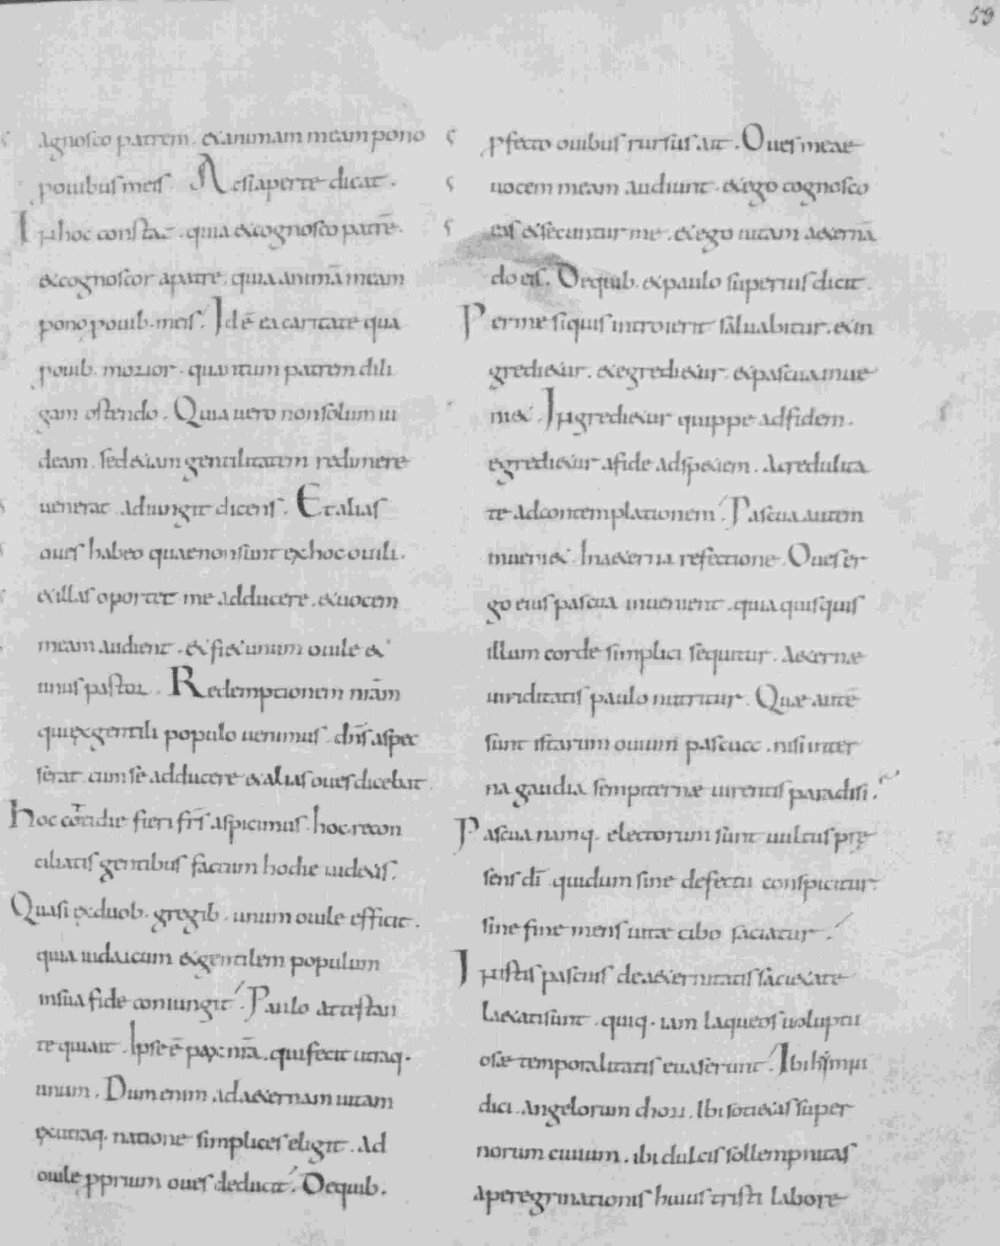 59
agnosco patrem. et animam meam pono
p ouibus meis. Ac si aperte dicat.
In hoc constat. quia et cognosco patrē.
et cognoscor a patre. quia animā meam
pono p ouib. meis. Id ē ea caritate qua
p ouib. morior. quantum patrem dili
gam ostendo. Quia uero non solum iu
deam. sed etiam gentilitatem redimere
uenerat. adiungit dicens. Et alias
oues habeo quae non sunt ex hoc ouili.
et illas oportet me adducere. et uocem
meam audient. et fiet unum ouile et
unus pastor. Redemptionem nr̄am
qui ex gentili populo uenimus. dn̄s aspex
serat. cum se adducere et alias oues dicebat.
hoc cotidie fieri fr̄s aspicimus. hoc recon
ciliatis gentibus factum hodie uidetis.
Quasi ex duob. gregib. unum ouile efficit.
quia iudaicum et gentilem populum
in sua fide coniungit. Paulo attestan
te qui ait. Ipse ē pax nr̄a. qui fecit utraq.
unum. Dum enim ad aeternam uitam
ex utraq. natione simplices eligit. Ad
ouile pprium oues deducit. De quib.
pfecto ouibus rursus ait. Oues meae
uocem meam audiunt. et ego cognosco
eas et secuntur me. et ego uitam aeternā
do eis. De quib. et paulo superius dicit.
Per me si quis introierit saluabitur. et in
gredietur. et egredietur. et pascua inue
niet. Ingredietur quippe ad fidem.
egredietur a fide ad speciem. A credulita
te ad contemplationem. Pascua autem
inueniet. In aeterna refectione. Oues er
go eius pascua inuenient. quia quisquis
illum corde simplici sequitur. Aeternæ
uiriditatis paulo nutritur. Quæ autē
sunt istarum ouium pascuæ. nisi inter
na gaudia sempiternæ uirentis paradisi.
Pascua namq. electorum sunt uultus prę
sens dī. qui dum sine defectu conspicitur.
sine fine mens uitæ cibo saciatur.
In istis pascuis de aeternitatis sacietate
laetati sunt. quiq. iam laqueos uoluptu
osæ temporalitatis euaserunt. Ibi hymni
dici angelorum chori. Ibi societas super
norum ciuium. ibi dulcis sollempnitas
a peregrinationis huius tristi labore